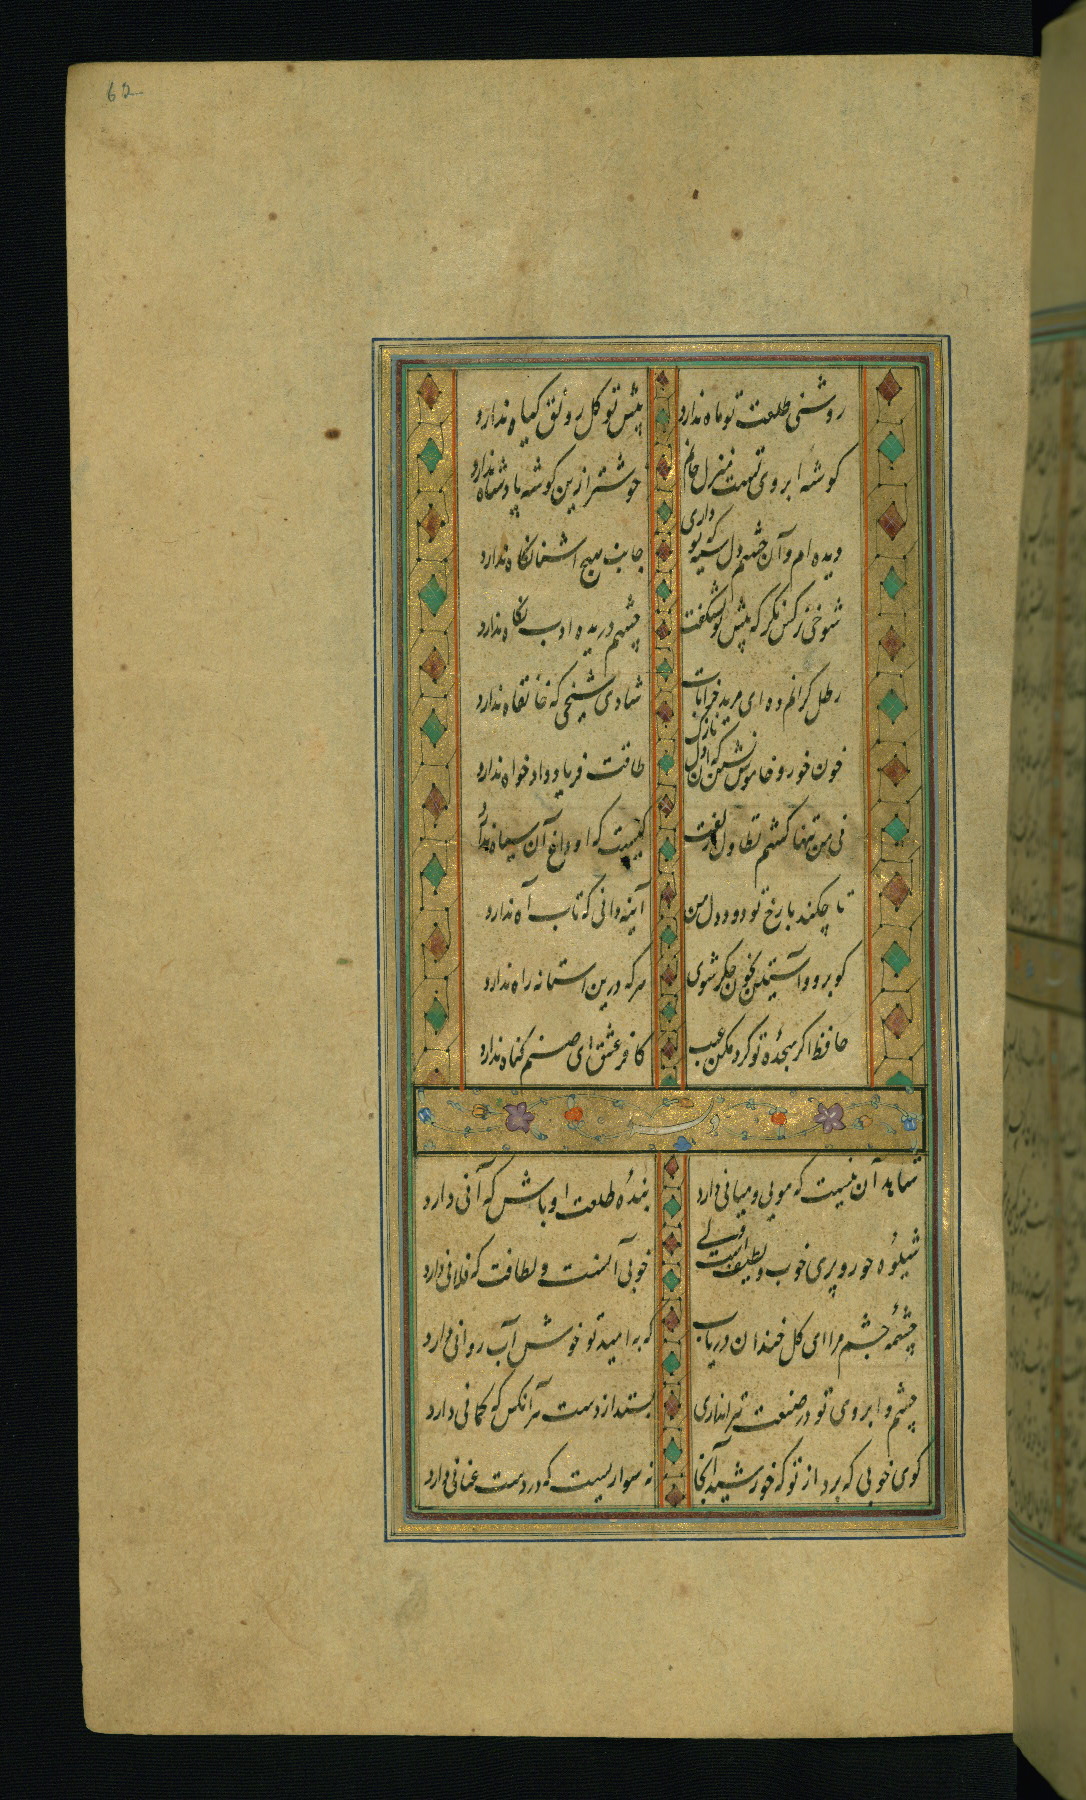 62
روشنی طلعت تو ماه ندارد پیش تو گل رونق گیاه ندارد
گوشه ابروی تست منزل جانم خوشتر ازین گوشه پادشاه ندارد
دیده ام و آن چشم دل سیه که تو داری جانب هیچ اشنا نگاه ندارد
شوخی نرگس نگر که پیش تو بشکفت چشم دریده ادب نگاه ندارد
رطل گرانم ده ای مرید خرابات شادی شیخی که خانقاه ندارد
خون خور و خاموش نشین که آن دل نازک طاقت فریاد دادخواه ندارد
نی من تنها کشم تطاول زلفت کیست که او داغ آن سیاه ندارد
تا چکند با رخ تو دود دل من آینه دانی که تاب آه ندارد
گو برو و آستین بخون جگر شوی هر که درین استانه راه ندارد
حافظ اگر سجدۀ تو کرد مکن عیب کافر عشق ای صنم گناه ندارد
شاهد آن نیست که مویی و میانی دارد بندۀ طلعت او باش که آنی دارد
شیوۀ حور و پری خوب و لطیف است ولی خوبی آنست و لطافت که فلانی دارد
چشمۀ چشم مرا ای گل خندان دریاب که به امید تو خوش آب روانی دارد
چشم و ابروی تو در صنعت تیراندازی بستد از دست هر آنکس که کمانی دارد
گوی خوبی که برد از تو که خورشید آنجا نه سواریست که در دست عنانی دارد